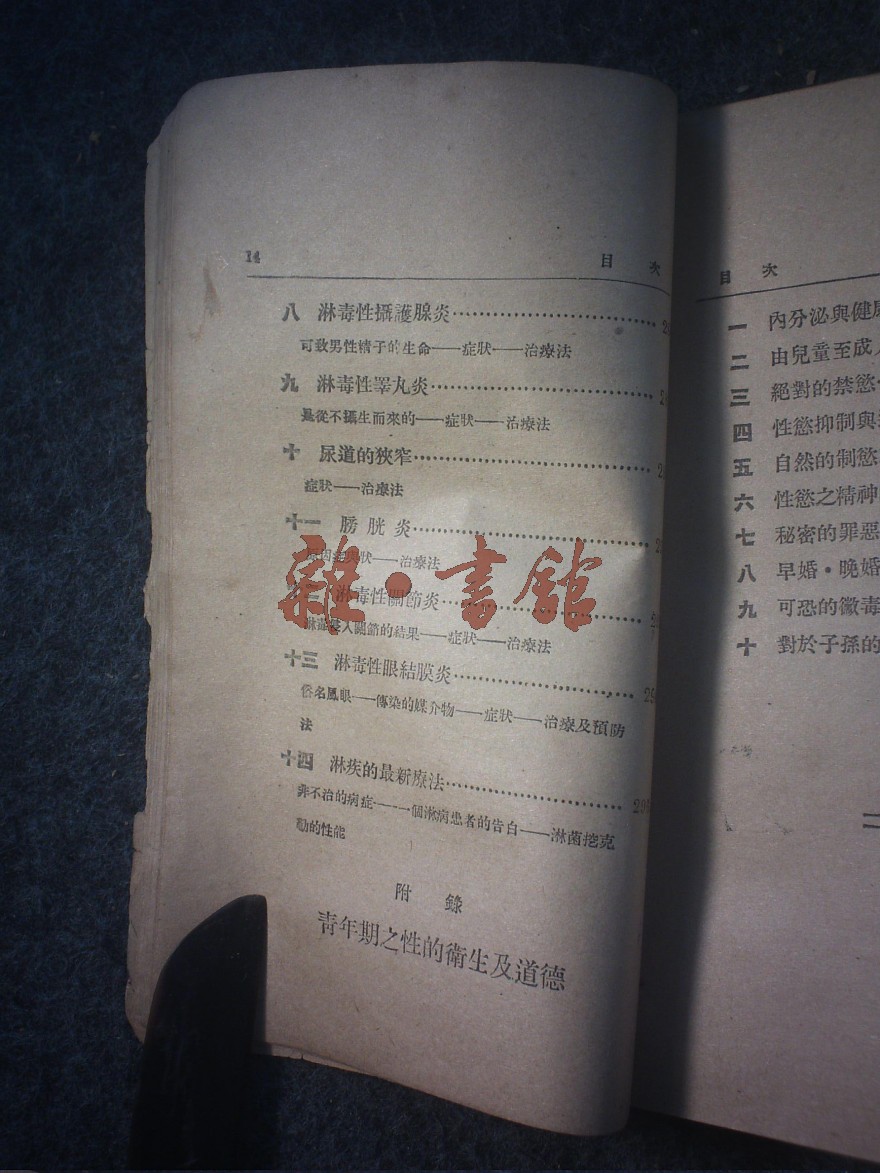 14
目 次
八 淋毒性攝護腺炎
可致男性精子的生命——症狀——治療法
九 淋毒性睪丸炎
是從不攝生而來的——症狀——治療法
十 尿道的狹窄
症狀——治療法
十一 膀胱炎
狀——治療法
淋毒性關節炎
入關節的結果——症狀——治療法
十三 淋毒性眼結膜炎
俗名風眼——傳染的媒介物——症狀——治療及預防
法
十四 淋疾的最新療法
非不治的病症——一個淋病患者的告白——淋菌挖克
勃的性能
附 錄
青年期之性的衛生及道德
雜·書館
目 次
一 內分泌與健
二 由兒童至成
三 絕對的禁慾
四 性慾抑制與
五 自然的制慾
六 性慾之精神
七 秘密的罪惡
八 早婚·晚婚
九 可恐的黴毒
十 對於子孫的